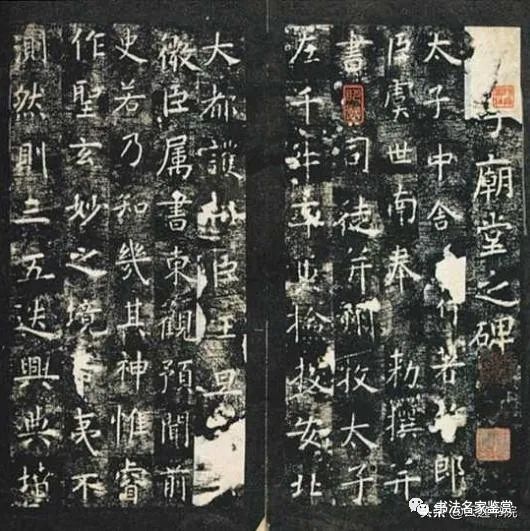 子廟堂之碑
太子中舍行著作郎
臣虞世南奉 勅撰并
書 司徒并州牧太子
左千牛率兼檢校安北
大都護相臣王旦
微臣属書東觀預聞前
史若乃知幾其神惟睿
作聖玄妙之境希夷不
測然則三五迭興典墳
书法名家鉴赏